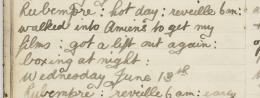 Rubempre : hot day : reveille 6am :
walked into Amiens to get my
films : got a lift out again :
boxing at night :
Wednesday June 18th
Rubempre : reveille 6 am : early